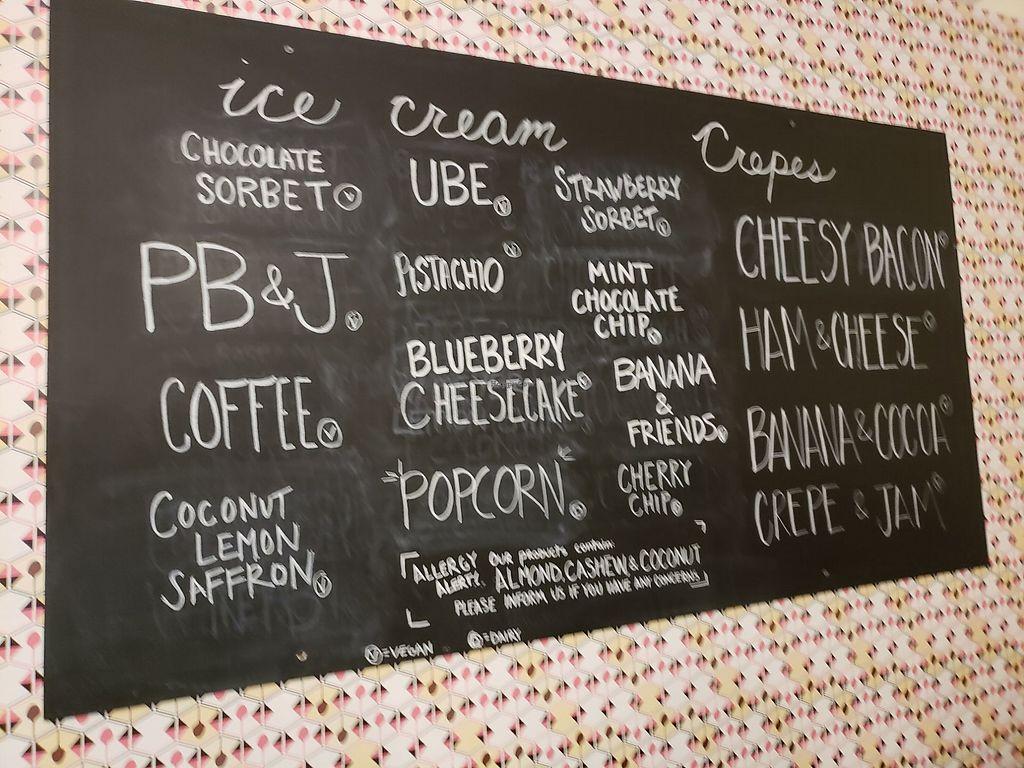 ice cream
CHOCOLATE
SORBET Ⓥ
PB & J Ⓥ
COFFEE Ⓥ
COCONUT
LEMON
SAFFRON Ⓥ
UBE Ⓥ
PISTACHIO Ⓥ
BLUEBERRY
CHEESECAKE
POPCORN
STRAWBERRY
SORBET Ⓥ
MINT
CHOCOLATE
CHIP
BANANA
&
FRIENDS
CHERRY
CHIP
ALLERGY OUR products contain:
ALERT: ALMOND, CASHEW & COCONUT
PLEASE INFORM US IF YOU HAVE ANY CONCERNS
Ⓥ=VEGAN Ⓓ=DAIRY
Crepes
CHEESY BACON
HAM & CHEESE
BANANA & COCOA
CREPE & JAM